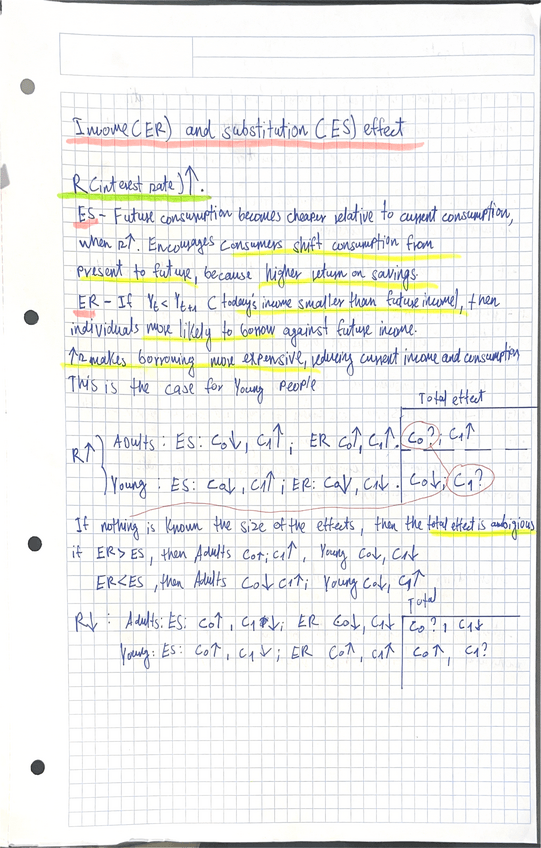 Income(ER) and substitution (ES) effect
R(interest rate)↑.
ES- Future consumption becomes cheaper relative to current consumption,
when r↑. Encourages consumers shift consumption from
present to future, because higher return on savings.
ER- If Yt < Yt+1 (today's income smaller than future income), then
individuals more likely to borrow against future income.
↑r makes borrowing more expensive, reducing current income and consumption
This is the case for Young people
Total effect
R↑ } Adults: ES: C0↓, C1↑; ER C0↑, C1↑. C0?, C1↑
Young: ES: C0↓, C1↑; ER: C0↓, C1↓. C0↓, C1?
If nothing is known the size of the effects, then the total effect is ambigious
if ER>ES, then Adults C0↑; C1↑, Young C0↓, C1↓
ER<ES, then Adults C0↓ C1↑; Young C0↓, C1↑
Total
R↓: Adults: ES: C0↑, C1↓; ER C0↓, C1↓ C0?, C1↓
Young: ES: C0↑, C1↓; ER C0↑, C1↑ C0↑, C1?